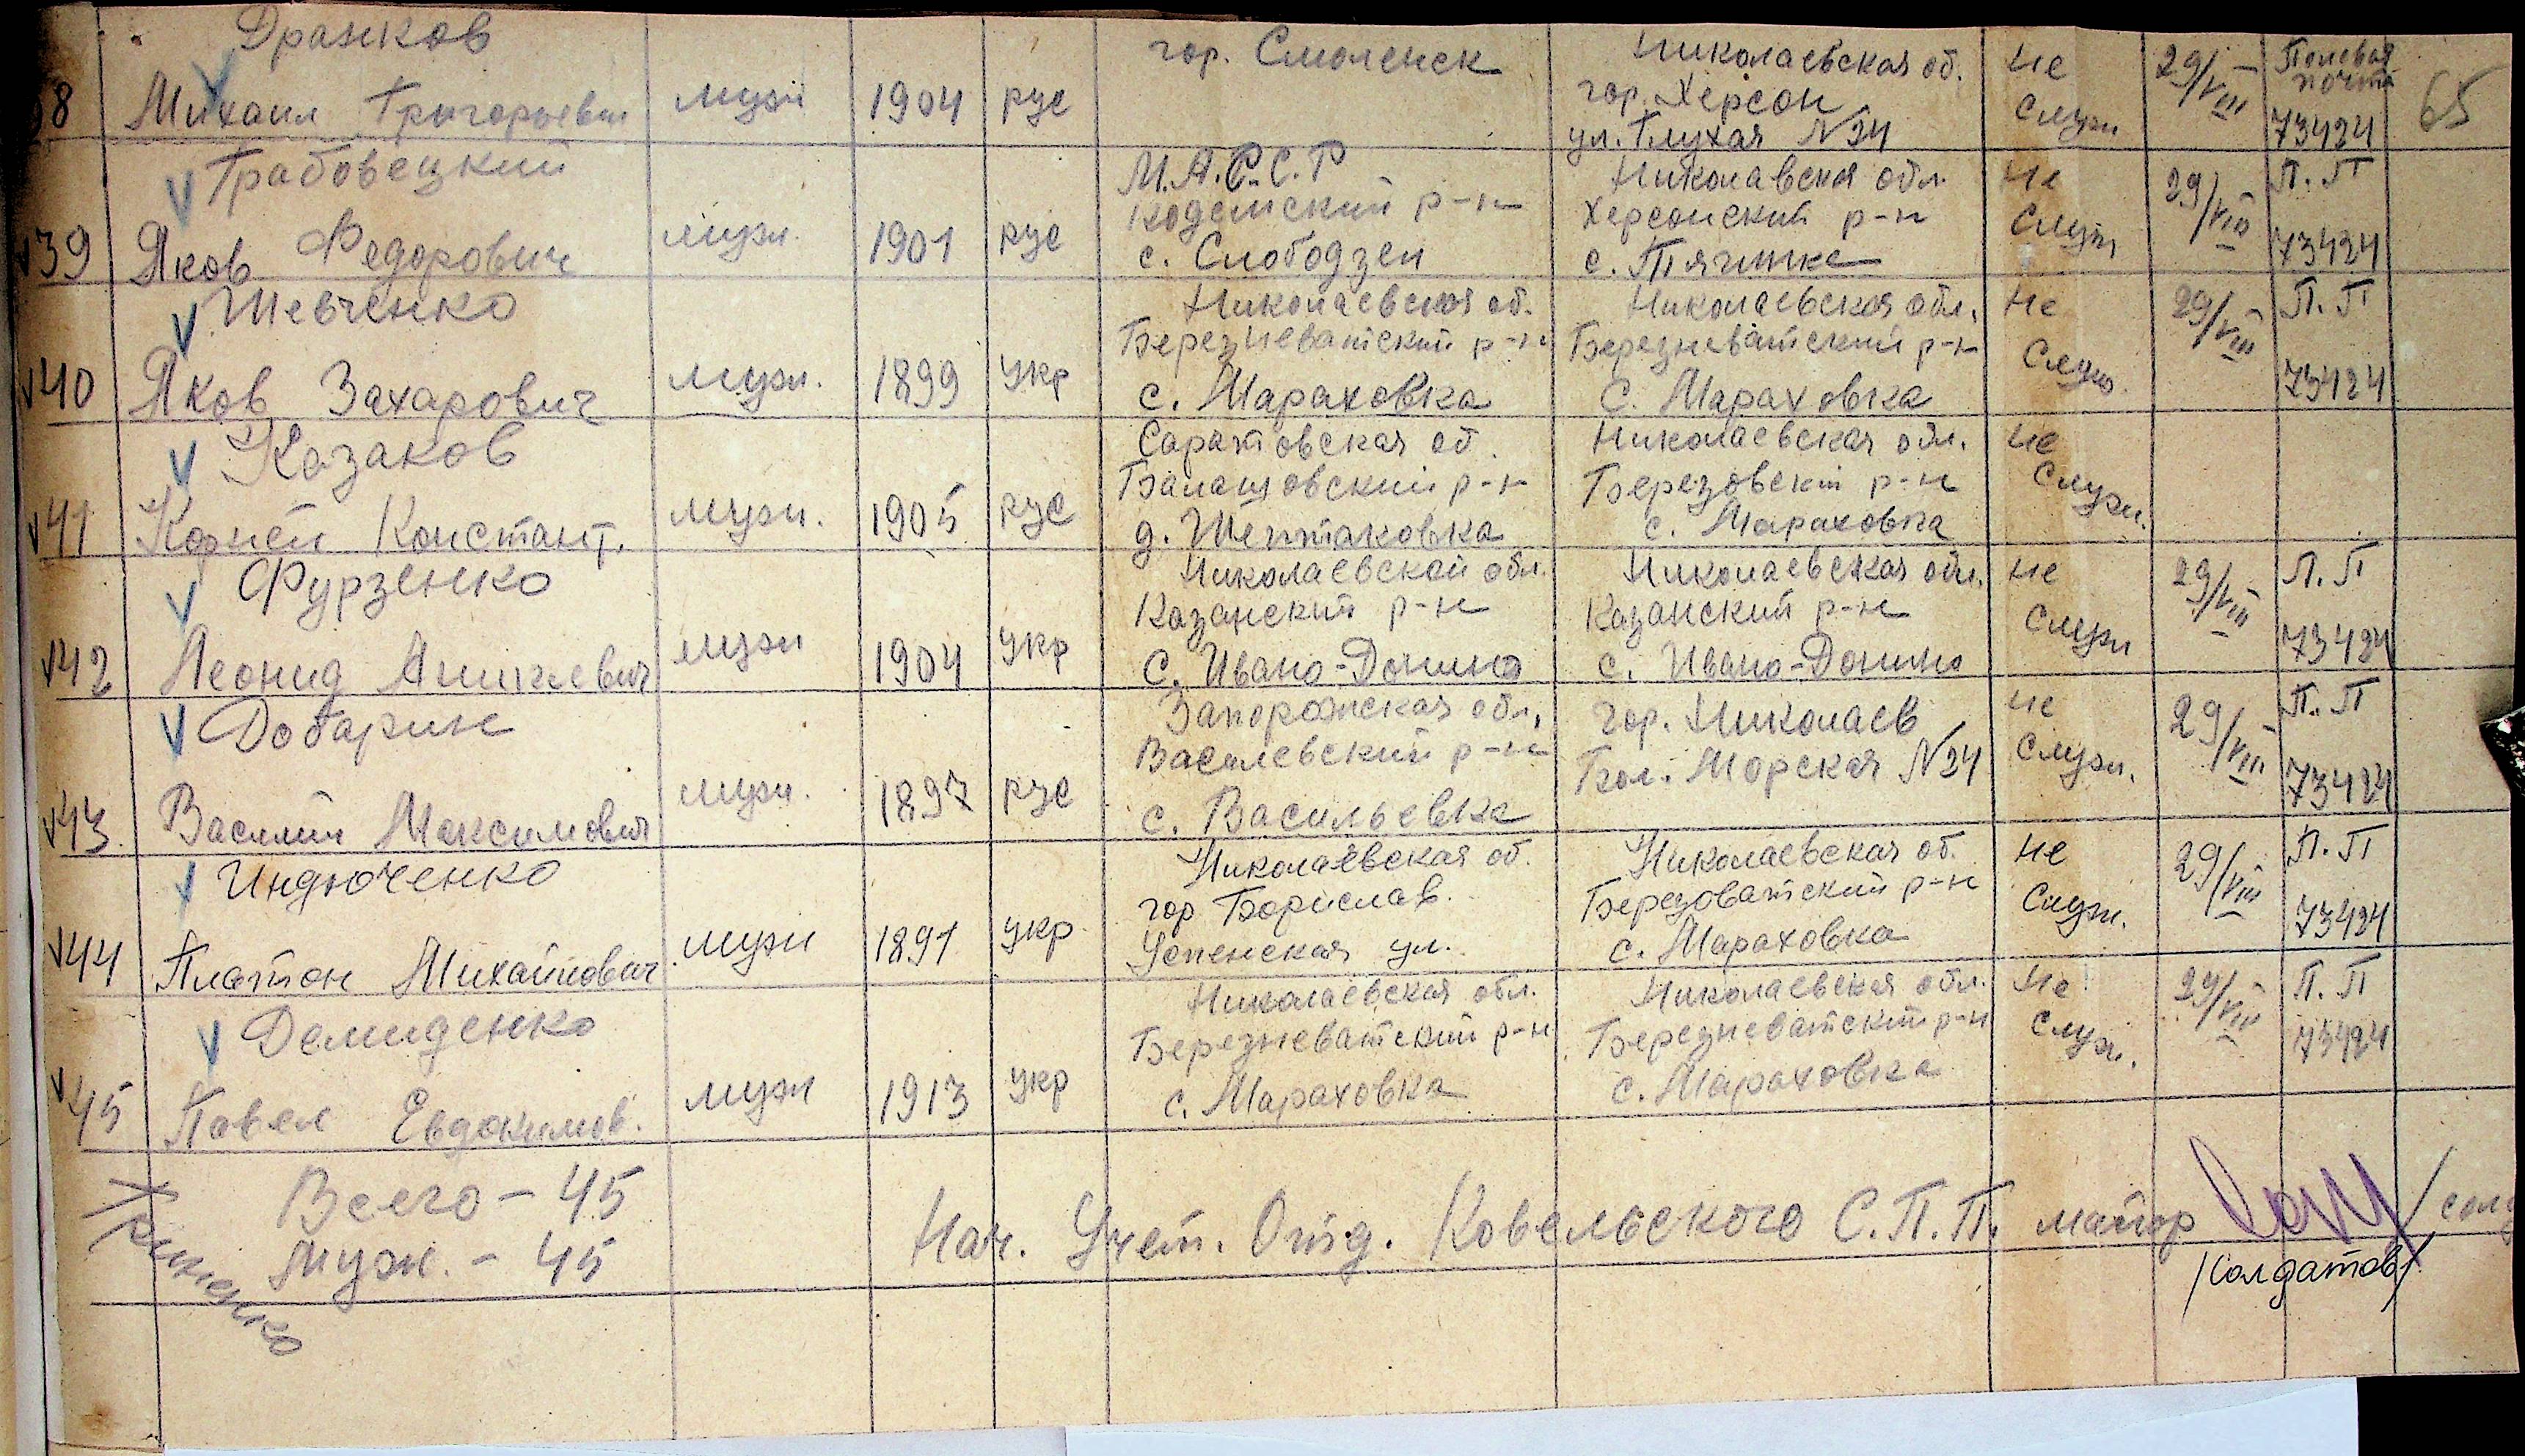 Дранков гор. Смоленск Николаевская об. не 29/VIII Полевая
38 Михаил Григорьевич муж 1904 рус гор. Херсон служ почта 65
ул. Глухая N 24 73424
Грабовецкий М.А.С.С.Р Николаевская обл. не 29/VIII П.П
39 Яков Федорович муж. 1901 рус Кодемский р-н Херсонский р-н служ 73424
с. Слободзеи с. Тягинка
Шевченко Николаевская об. Николаевская обл. не 29/VIII П.П
40 Яков Захарович муж. 1899 укр Березневатский р-н Березневатский р-н служ. 73424
с. Мараховка с. Мараховка
Казаков Саратовская об. Николаевская обл. не
41 Корней Констант. муж. 1905 рус Балашовский р-н Березовский р-н служ.
д. Шептаковка с. Мараховка
Фурзенко Николаевской обл. Николаевская обл. не 29/VIII П.П
42 Леонид муж 1904 укр Казанский р-н Казанский р-н служ 73424
с. Ивано-Донино с. Ивано-Донино
Добарин Запорожская обл. гор. Николаев не 29/VIII П.П
43. Василий Максимович муж. 1897 рус Василевский р-н Бол. Морская N 24 служ. 73424
с. Васильевка
Индюченко Николаевская об. Николаевская об. не 29/VIII П.П
44 Платон Михайлович муж 1891 укр. гор Борислав. Березоватский р-н служ. 73424
Успенская ул. с. Мараховка
Демиденко Николаевская обл. Николаевская обл. не 29/VIII П.П
45 Павел Евдокимов. муж 1913 укр Березневатский р-н Березневатский р-н служ. 73424
с. Мараховка с. Мараховка
Всего - 45
Муж. - 45
Нач. Учет. Отд. Ковельского С.П.П. майор
/Солдатов/